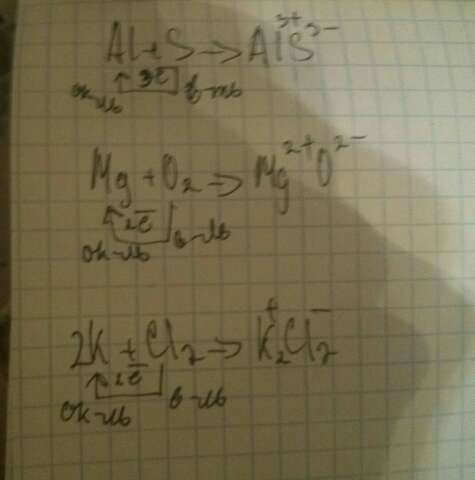 Al + S → Al³⁺S³⁻
3ē
ок-ль в-ль
Mg + O₂ → Mg²⁺O²⁻
2ē
ок-ль в-ль
2K + Cl₂ → K₂⁺Cl₂⁻
2ē
ок-ль в-ль